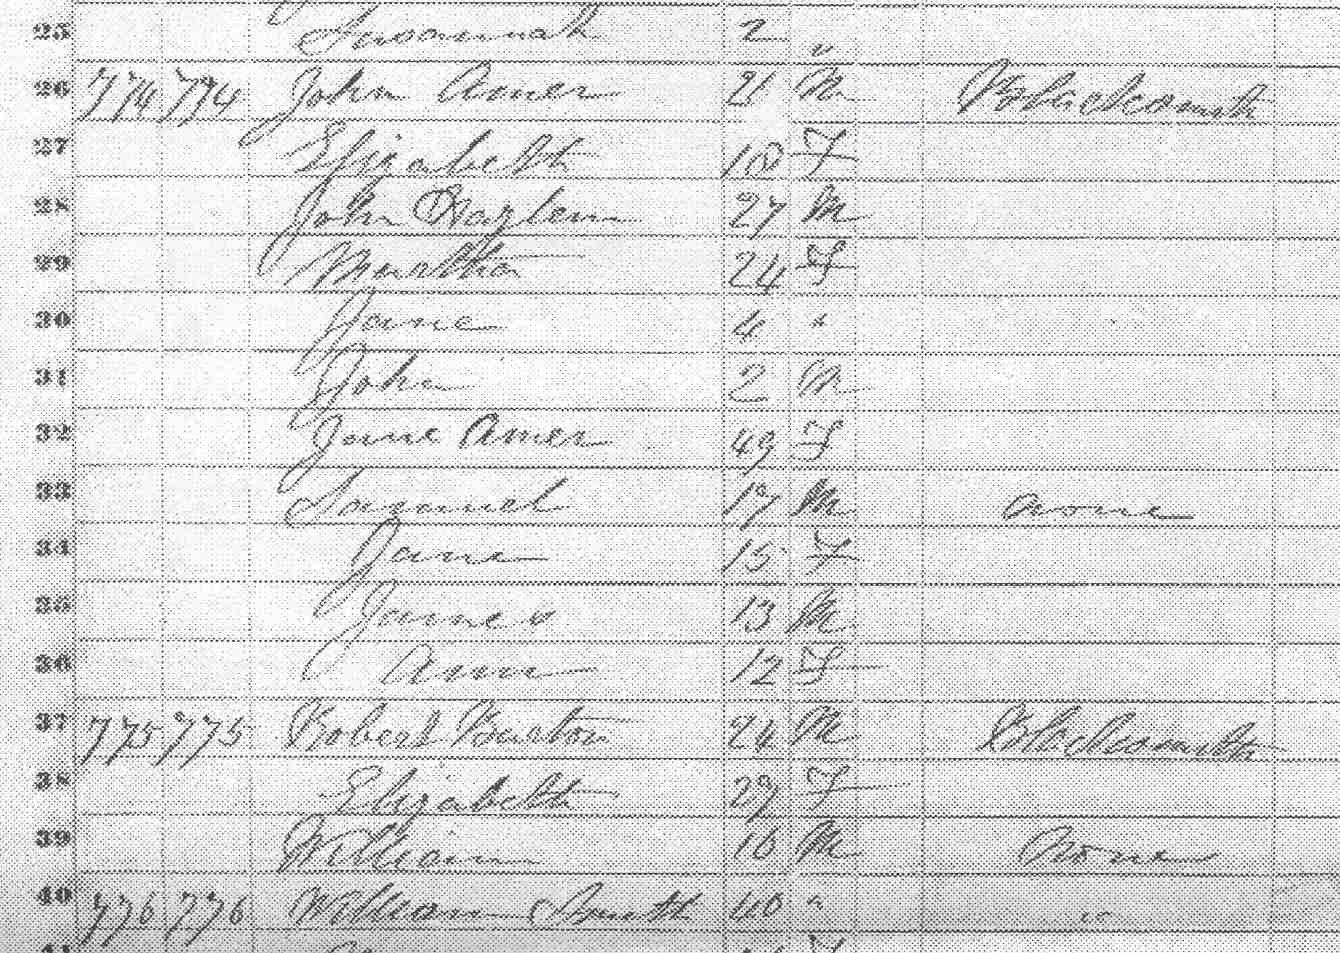 25 Susannah 2 "
26 774 774 John Amer 21 M Blacksmith
27 Elizabeth 18 F
28 John Hazlem 27 M
29 Martha 24 F
30 Jane 4 "
31 John 2 M
32 Jane Amer 49 F
33 Samuel 17 M None
34 Jane 15 F
35 James 13 M
36 Ann 12 F
37 775 775 Robert Burton 24 M Blacksmith
38 Elizabeth 29 F
39 William 16 M None
40 776 776 William Smith 40 " "
41 F